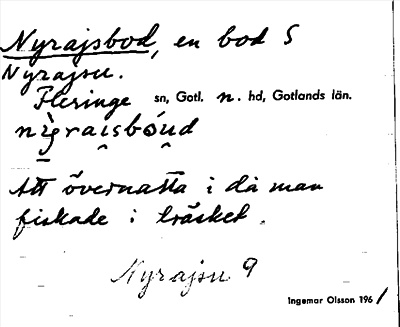 Nyrajsbod, en bod S
Nyrajsu.
Fleringe sn, Gotl. n. hd, Gotlands län.
Att övernatta i då man
fiskade i träsket.
Nyrajsu 9
Ingemar Olsson 1961